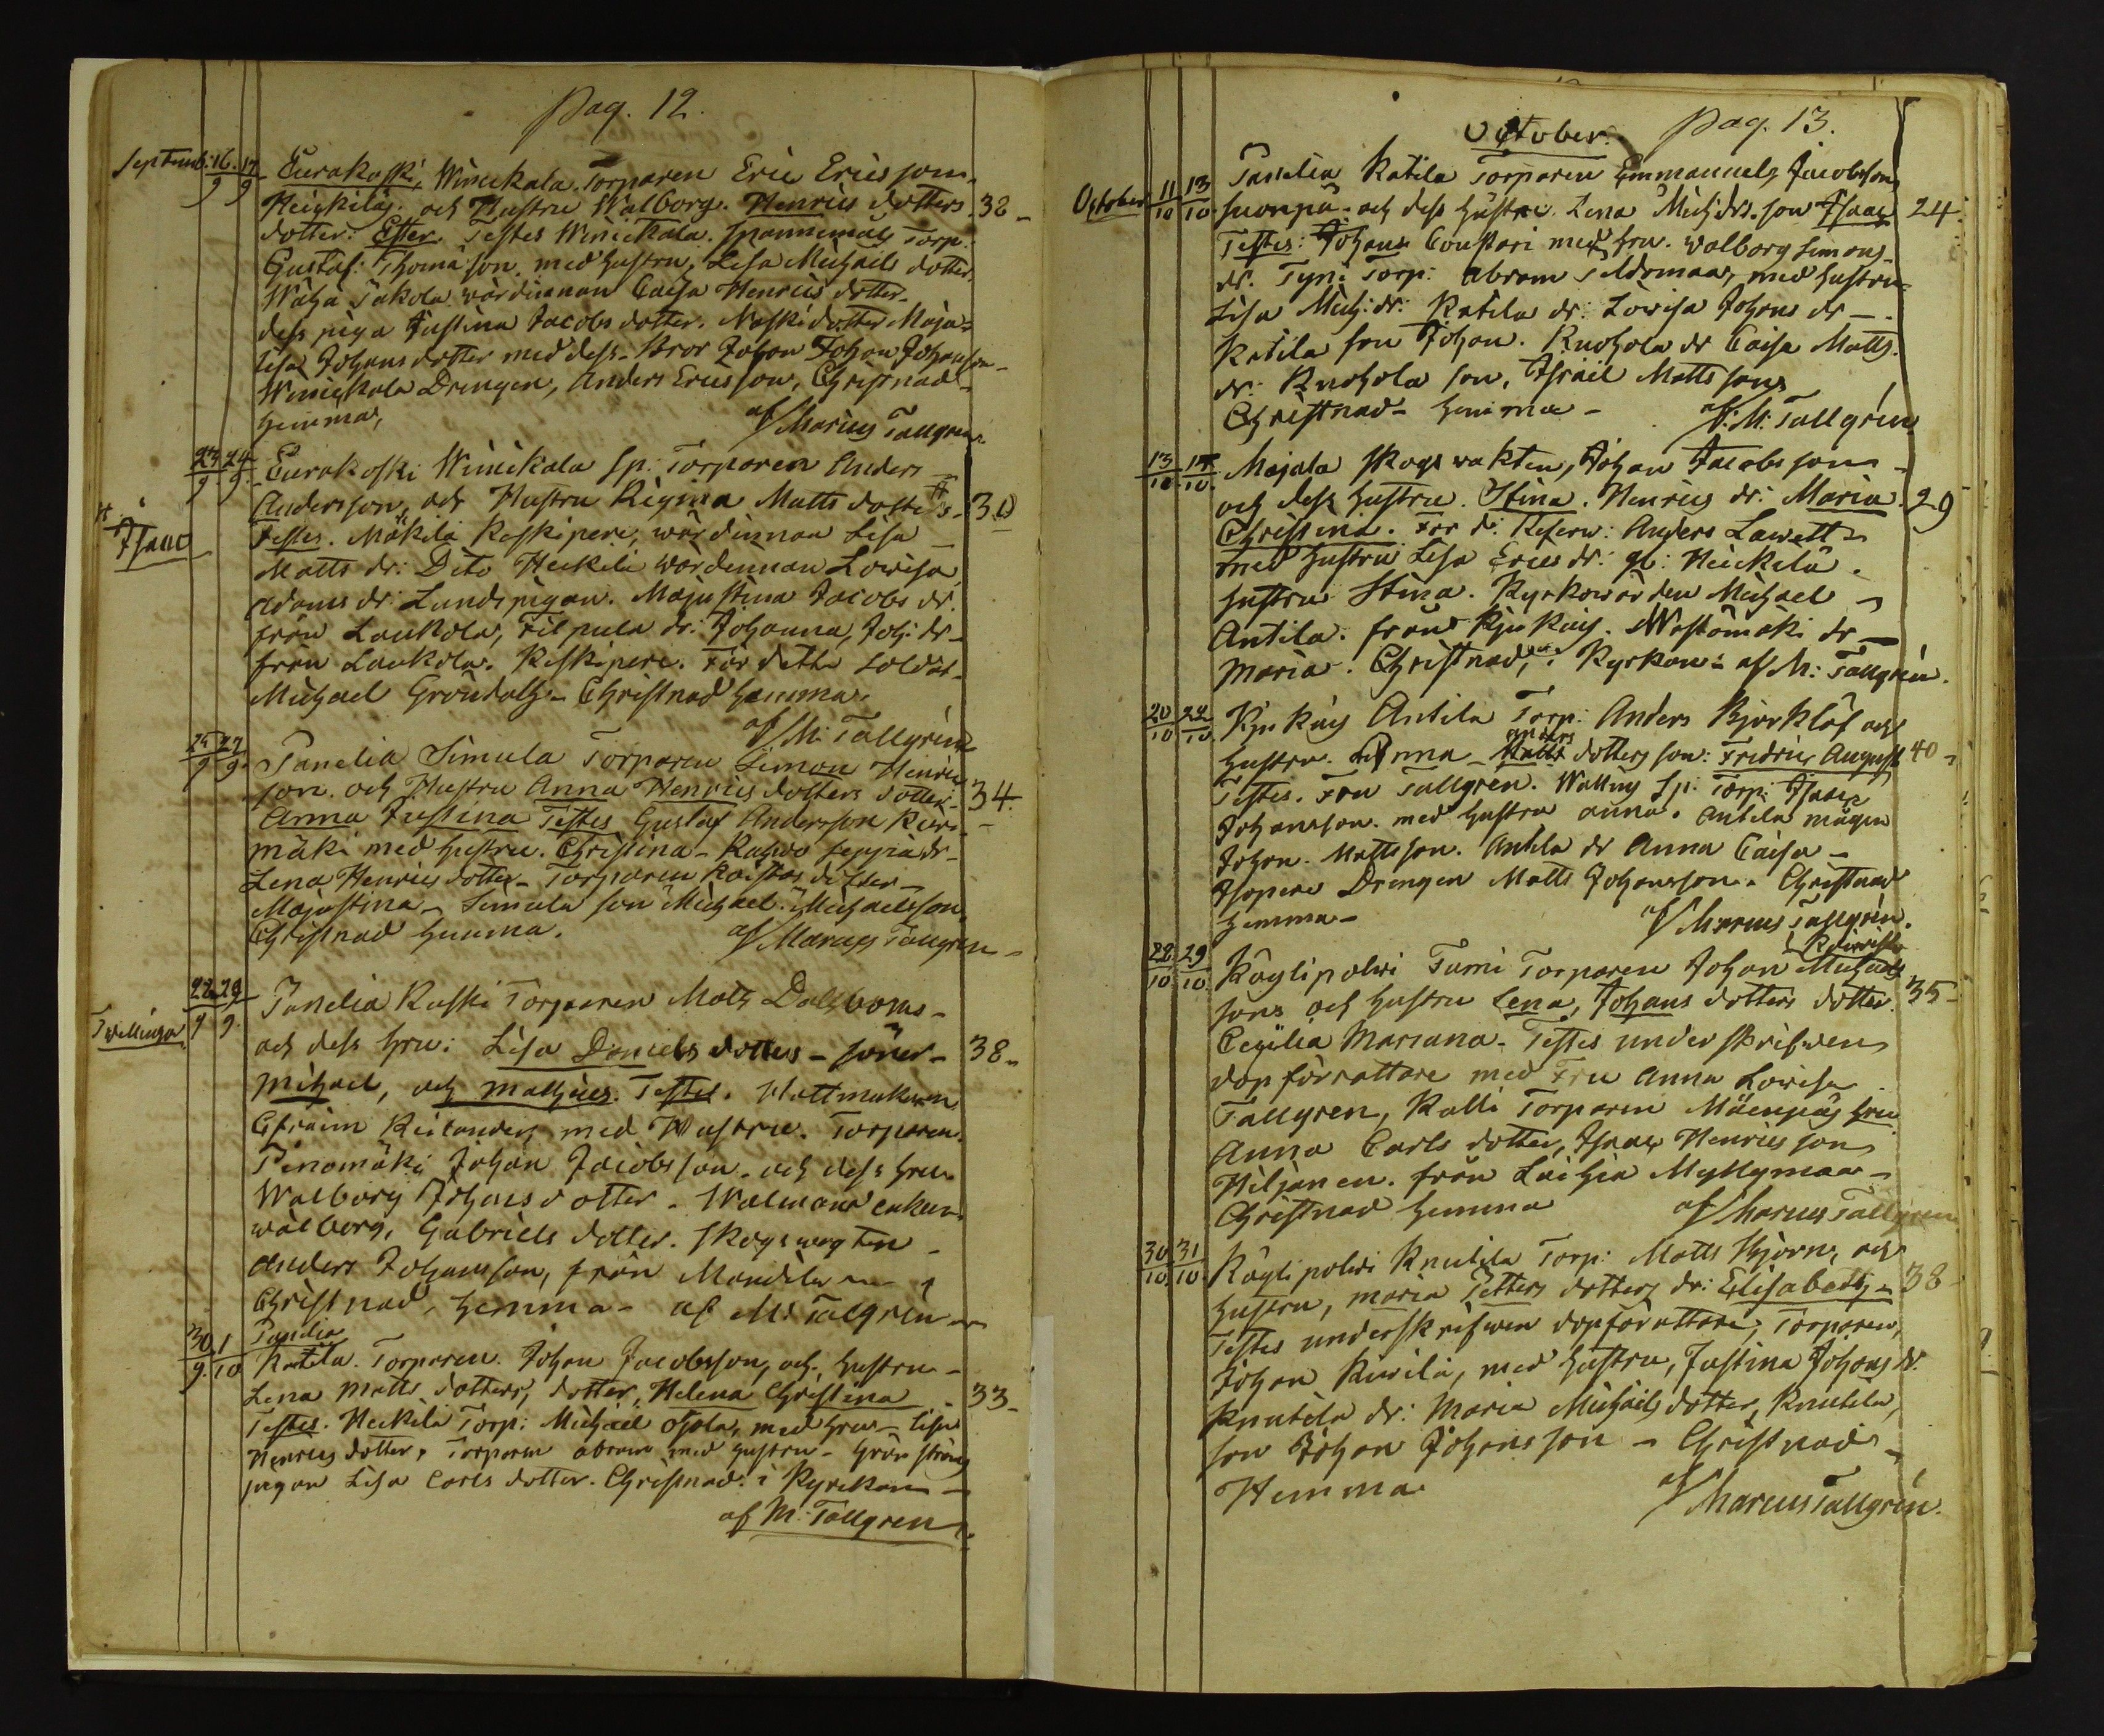 Pag. 12.
Septemb: 16/9 17/9 Eurakoski, Winickala Torparen Eric Ericsson
Heickiläs. och Hustru Walborg. Henrics dotters 32
dotter: Ester. Testes Winickala. Torp:
Gustaf: Thomasson med hustru, Lisa Michails dotter,
Jakola wärdinnan Caisa Henrics dotter.
dess piga Justina Jacobs dotter. dotter Maja
Lisa Johans dotter med dess Bror Johan Johan Johansson
Winickala Drengen, Anders Ericsson, Christnad
hemma, af Marcus Tallgren
23/9 24/9 Eurakoski Winikala sp: Torparen Anders
Andersson, och Hustru Regina Matts dotters # 30
# Isaac
Testes. Mäkilä Keskipere, wärdinnan Lisa
Matts dr: Dito Heickili wärdinnan Lowisa
Adams dr: Lunds pigan. Majustina Jacobs dr.
från Laukola, Filpula dr: Johanna, Joh: dr
från Laukola. Keskipere. För detta Soldat
Michael Gröndahl. Christnad hemma.
af M: Tallgren
25/9 27/9 Panelia Simula Torparen Simon Henric
son och Hustru Anna Henrics dotters dotter 34.
Anna Justina Testes Gustaf Andersson
mäki med hustru. Christina dr
Lena Henrics dotter Torparen dotter
Majustina Simula son Michael Michaelsson
Christnad hemma. af Marcus Tallgren
Twillingar
22/9 29/9 Panelia Kaski Torparen Mats Dalboms
och dess hru: Lisa Daniels dotters söner 38
Michael, och Mathies. Testes. Hattmakaren
Efraim med Hustru. Torparen
Pinomäki Johan Jacobsson. och dess hru
Walborg Johans dotter. Walmans enkan
Walborg, Gabriels dotter. Skogswagten
Anders Johansson, från Mandila
Christnad, hemma af M: Talgren
30/9 1/10 Panelia
Katila. Torparen. Johan Jacobsson, och hustru
Lena Matts dotters, dotter, Helena Christina 33
Testes. Heickilä Torp: Michael Ojala, med hru Lisa
Henrics dotter, Torparen Abram med hustru
pigan Lisa Carls dotter. Christnad i Kyrckan
af M: Tallgren
October. Pag. 13.
October 11/10 13/10 Panelia Katila Torparen Emmanuels Jacobsson
Suonpä och dess hustru. Lena Mich: drs. son Isaac 24.
Testes: Johans Coustari med hru. Walborg Simons
dr. Tyni Torp: Abram med hustru
Lisa Mich: dr: Katila dr: Lowisa Johans dr
Katila son Johan. Knohola dr Caisa Matts
dr: Knohola son, Israil Mattsson
Christnad hemma af: M: Tallgren
13/10 14/10 Majala Skogswakten, Johan Jacobsson
och dess hustru. Stina. Henrics dr: Maria 29
Christina. För d: Reserv: Anders Lawett
med hustru Lisa Erics dr: gl: Heickilä.
hustru Stina. Kyrkowärden Michael
Antila. från Kjukais. dr
Maria. Christnad, i Kyrkan af M: Tallgren.
20/10 22/10 Kjukais Antila Torp: Anders Björklöf och
hustru Anna Anders Matts dotters son: Fredric August 40
Testes. Fru Tallgren. sp: Torp: Isaac
Johansson. med hustru Anna. Antila mågen
Johan. Mattsson. Antila dr Anna Caisa
Isopere Drengen Matts Johansson. Christnad
hemma af Marcus Tallgren.
28/10 29/10 Köylipolwi Tumi Torparen Johan Michails
sons och hustru Lena, Johans dotters dotter 35
Cecilia Mariana. Testes underskrifwen
dopförrättare med Fru Anna Lowisa
Tallgren, Kalli Torparen Mäenpäs hru
Anna Carls dotter, Isaac Henricsson
Hiljanen. från Laihia Myllymaa
Christnad hemma af Marcus Tallgren
30/10 31/10 Köylipolwi Knutila Torp: Matts Stjern, och
hustru, Maria Petters dotters dr: Elisabeth 38
Testes underskrifwen dopförättare, Torparen,
Johan med hustru, Justina Johans dr.
Knutila dr: Maria Michails dotter, Knutila,
son Johan Johansson Christnad
Hemma. af Marcus Tallgren.